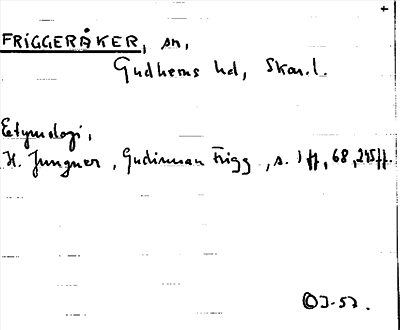 FRIGGERÅKER, sn,
Gudhems hd, Skar. l.
Etymologi,
H. Jungner, Gudinnan Frigg, s. 1 ff, 68, 245 ff.
OJ-57.